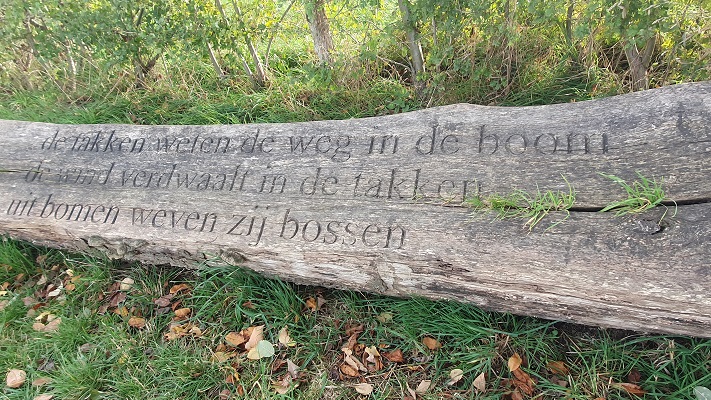 de takken weten de weg in de boom
de wind verdwaalt in de takken
uit bomen weven zij bossen